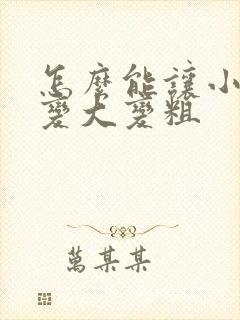 怎麼能讓小
變大變粗
萬某某